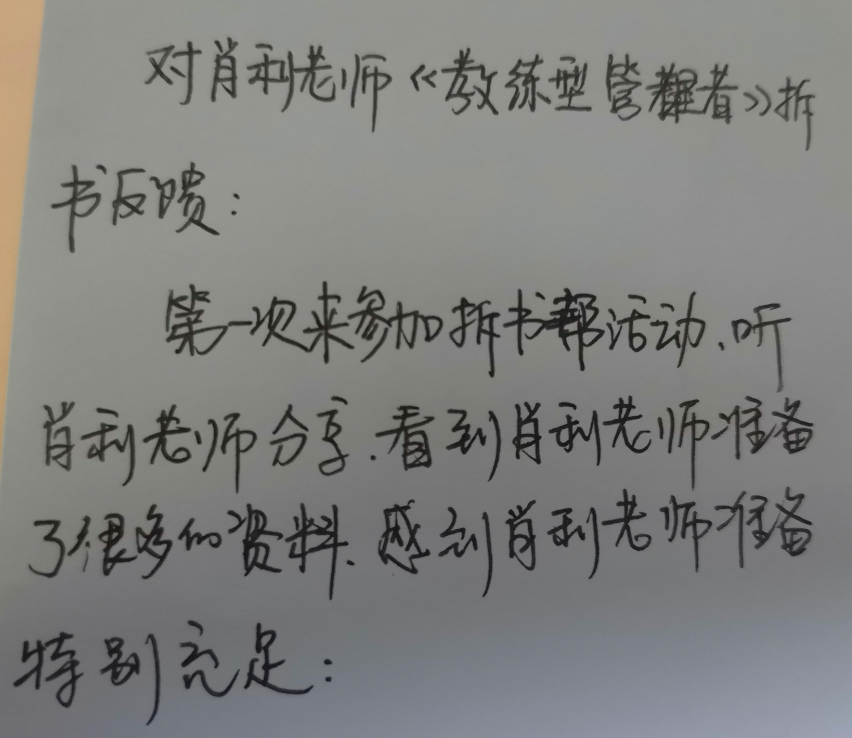 对肖利老师《教练型管理者》拆
书反馈:
第一次来参加拆书帮活动、听
肖利老师分享.看到肖利老师准备
了很多的资料、感到肖利老师准备
特别充足: